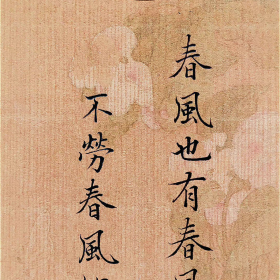 春風也有春風
不勞春風